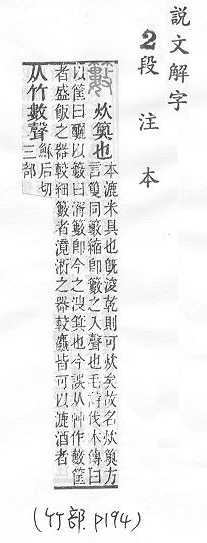 說文解字
2段注本
籔 炊䉛也 本漉米具也旣浚乾則可炊矣故名炊䉛方
言䉛同籔縮卽籔之入聲也毛詩伐木傳曰
以筐曰釃以籔曰湑籔卽今之溲箕也今誤从艸作藪筐
者盛飯之器較細籔者漉淅之器較麤皆可以漉酒者
从竹數聲 穌后切
三部
(竹部.P194)